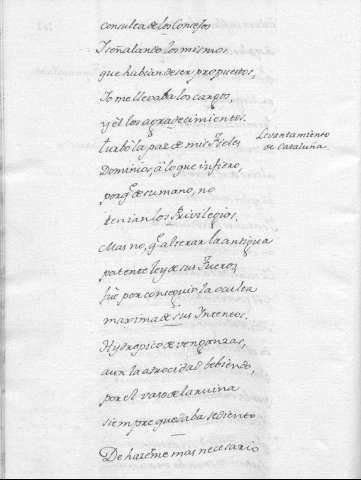 consulta de los Consejos
Y señalando los mismos
que habian de ser propuestos,
Yo me llevaba los cargos,
y él los agradecimientos.
turbó la paz de mis fieles
Levantamiento
de Cataluña.
Dominios, á lo que infiero,
porq.e de su mano, no
tenian los Privilegios.
Mas no, q.e alterar la antigua
patente ley de sus fueros,
fué por conseguir la oculta
maxima de sus Intentos.
Hydropico de venganzas,
aun la atrocidad bebiendo,
por el vaso de la ruina
siempre quedaba sediento
De hacerme mas necesario